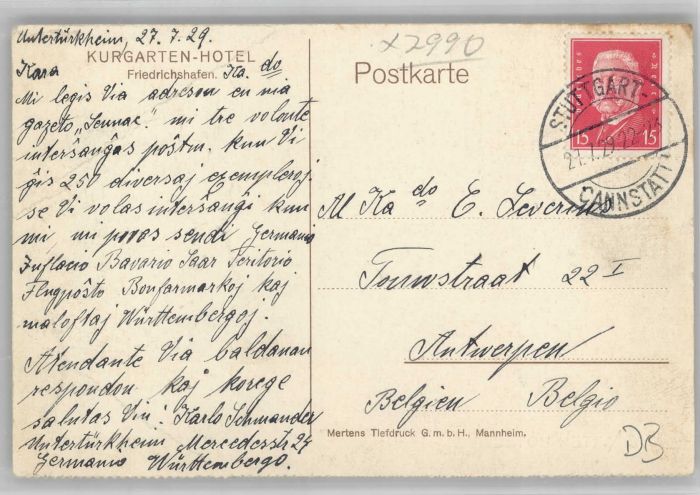 Untertürkheim, 27.7.29.
KURGARTEN-HOTEL
Friedrichshafen.
Kara Ka. do
Mi legis Via adreson en nia
gazeto „Sennac“. mi tre volonte
interŝanĝas poŝtm. kun Vi
ĝis 250 diversaj ejempleroj.
se Vi volas interŝanĝi kun
mi, mi povas sendi Germanio
Inflacio Bavario Saar Teritorio
Flugpoŝto Bonfarmarkoj kaj
maloftaj Württembergoj.
Atendante Via baldanan
respondon kaj korege
salutas Vin! Karlo Schwander
Untertürkheim Mercedesstr 27
Germanio Württembergo.
x2990
Postkarte
15 15
STUTTGART-
27.7.29.22-23
CANNSTATT
Al Ka do E. Severin
Touwstraat 22 I
Antwerpen
Belgien Belgio
Mertens Tiefdruck G.m.b.H., Mannheim.
DB